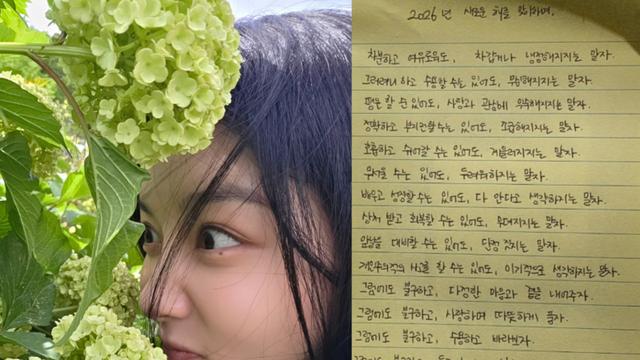 2026년 새로운 해를 맞이하며,
차분하고 여유로워도, 차갑거나 냉정해지지는 말자.
그러려니 하고 수용할 수는 있어도, 무뎌해지지는 말자.
평온 할 순 있어도, 사랑과 관심에 익숙해지지는 말자.
정확하고 부지런할 수는 있어도, 조급해지지는 말자.
호흡하고 쉬어갈 수는 있어도, 게을러지지는 말자.
무서울 수는 있어도, 두려워하지는 말자.
배우고 성장할 수는 있어도, 다 안다고 생각하지는 말자.
상처 받고 회복할 수는 있어도, 무뎌지지는 말자.
앞날을 대비할 수는 있어도, 단정 짓지는 말자.
개인주의적인 사고를 할 수는 있어도, 이기적으로 생각하지는 말자.
그럼에도 불구하고, 다정한 마음과 곁을 내어주자.
그럼에도 불구하고, 사랑하며 따뜻하게 품자.
그럼에도 불구하고, 수용하고 바라보자.
그럼에도 불구하고